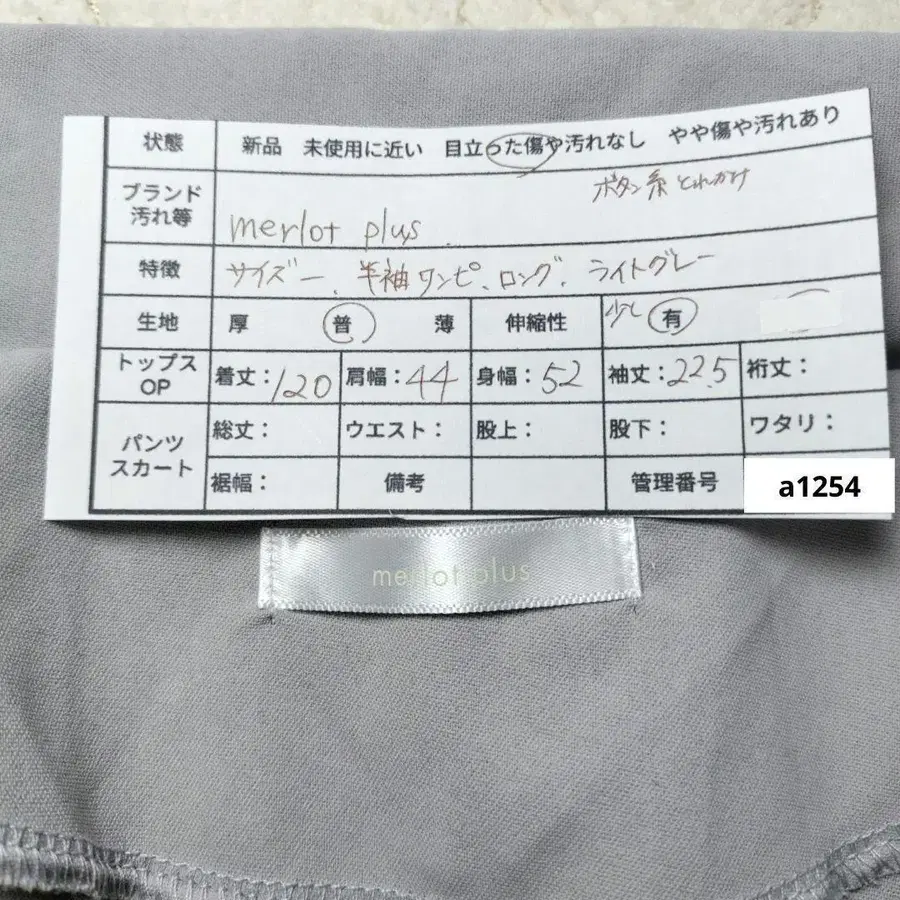 状態 新品 未使用に近い 目立った傷や汚れなし やや傷や汚れあり
ブランド
汚れ等
ボタン糸とれかけ
merlot plus
特徴 サイズー、半袖ワンピ、ロング、ライトグレー
生地 厚 普 薄 伸縮性 少し 有
トップス
OP
着丈:120 肩幅:44 身幅:52 袖丈:22.5 裄丈:
パンツ
スカート
総丈: ウエスト: 股上: 股下: ワタリ:
裾幅: 備考 管理番号 a1254
merlot plus